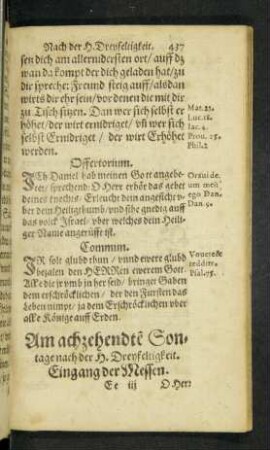 Nach der H. Dreyfeltigkeit. 437
sen dich am allerundersten ort/ auff dz
wan da kompt der dich geladen hat/ zu
die spreche: Freund steig auff/ alsdan
wirts dir ehr sein/ vor denen die mit dir
zu Tisch sitzen. Dan wer sich selbst er
höhet/ der wirt ernidriget/ vñ wer sich
selbst Ernidriget/ der wirt Erhöhet
werden.
Mat. 23.
Luc. 18.
Iac. 4.
Prou. 25.
Phil. 2
Offertorium.
ICh Daniel hab meinen Gott angebe-
tet/ sprechend: O Herr erhör das gebet
deines knechts/ Erleucht dein angesicht v-
ber dein Heiligthumb/ vnd sihe gnedig auff
das volck Israel/ vber welches dein Heili-
ger Name angerüfft ist.
Dan. 9.
Commun.
IR solt glubd thun/ vnnd ewere glubd
bezalen den HERRen ewerem Gott.
Alle die jr vmb in her seid/ bringet Gaben
dem erschröcklichen/ der den Fürsten das
Leben nimpt/ ja dem Erschröcklichen vber
alle Könige auff Erden.
Vouete &
reddite.
Psal. 75.
Am achzehendtē Son-
tage nach der H. Dreyfeltigkeit.
Eingang der Messen.
Ee iij O Herr